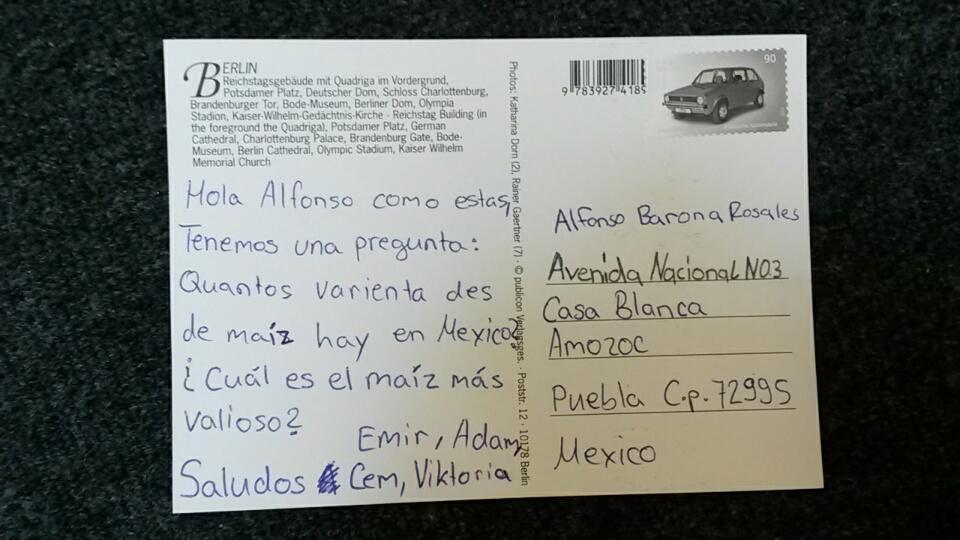 BERLIN
Reichstagsgebäude mit Quadriga im Vordergrund,
Potsdamer Platz, Deutscher Dom, Schloss Charlottenburg,
Brandenburger Tor, Bode-Museum, Berliner Dom, Olympia
Stadion, Kaiser-Wilhelm-Gedächtnis-Kirche · Reichstag Building (in
the foreground the Quadriga), Potsdamer Platz, German
Cathedral, Charlottenburg Palace, Brandenburg Gate, Bode-
Museum, Berlin Cathedral, Olympic Stadium, Kaiser Wilhelm
Memorial Church
Hola Alfonso como estas,
Tenemos una pregunta:
Quantos varienta des
de maíz hay en Mexico?
¿Cuál es el maíz más
valioso?
Emir, Adam,
Saludos Cem, Viktoria
Photos: Katharina Dorn (2), Rainer Gaertner (7) · © publicon Verlagsges. · Poststr. 12 · 10178 Berlin
9 783927 4185
90
Alfonso Barona Rosales
Avenida Nacional NO3
Casa Blanca
Amozoc
Puebla C.p. 72995
Mexico